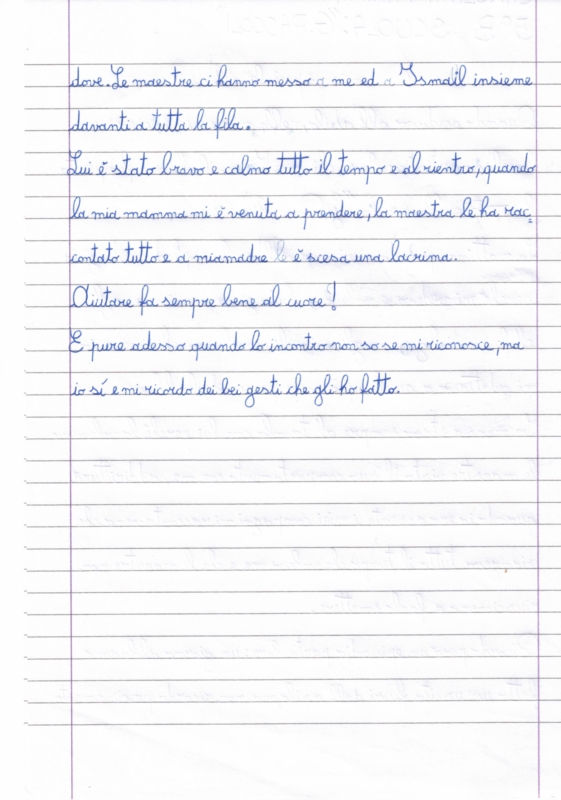 dove. Le maestre ci hanno messo a me ed a Ismail insieme
davanti a tutta la fila.
Lui è stato bravo e calmo tutto il tempo e al rientro, quando
la mia mamma mi è venuta a prendere, la maestra le ha rac
contato tutto e a mia madre le è scesa una lacrima.
Aiutare fa sempre bene al cuore!
E pure adesso quando lo incontro non so se mi riconosce, ma
io sí e mi ricordo dei bei gesti che gli ho fatto.